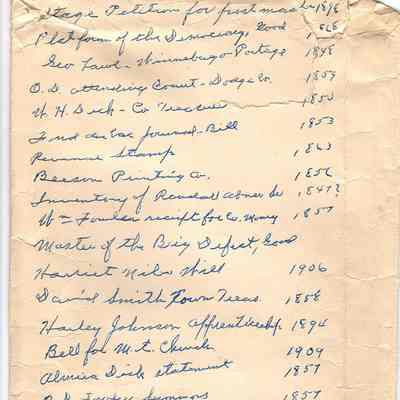 Stage Petition for postmaster 1898
Platform of the Democracy, Good
Geo Law - Winnebago-Portage 1848
O. D. attending Court - Dodge Co. 1859
W. H. Dick - Co Treasurer 1850
Fond du Lac Journal - Bill 1853
Revenue Stamp 1863
Beeson Printing Co. 1856
Inventory of Randall Abner 1847?
Wm Fowler receipt for Co. Money 1857
Master of the Big Defeat, Good
Harriet Niles Will 1906
David Smith Town Treas. 1858
Harley Johnson apprenticeship 1894
Bill for M. E. Church 1909
Almira Dick statement 1857
1857